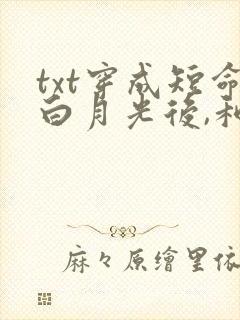 txt穿成短命
白月光後,和
麻々原繪里依